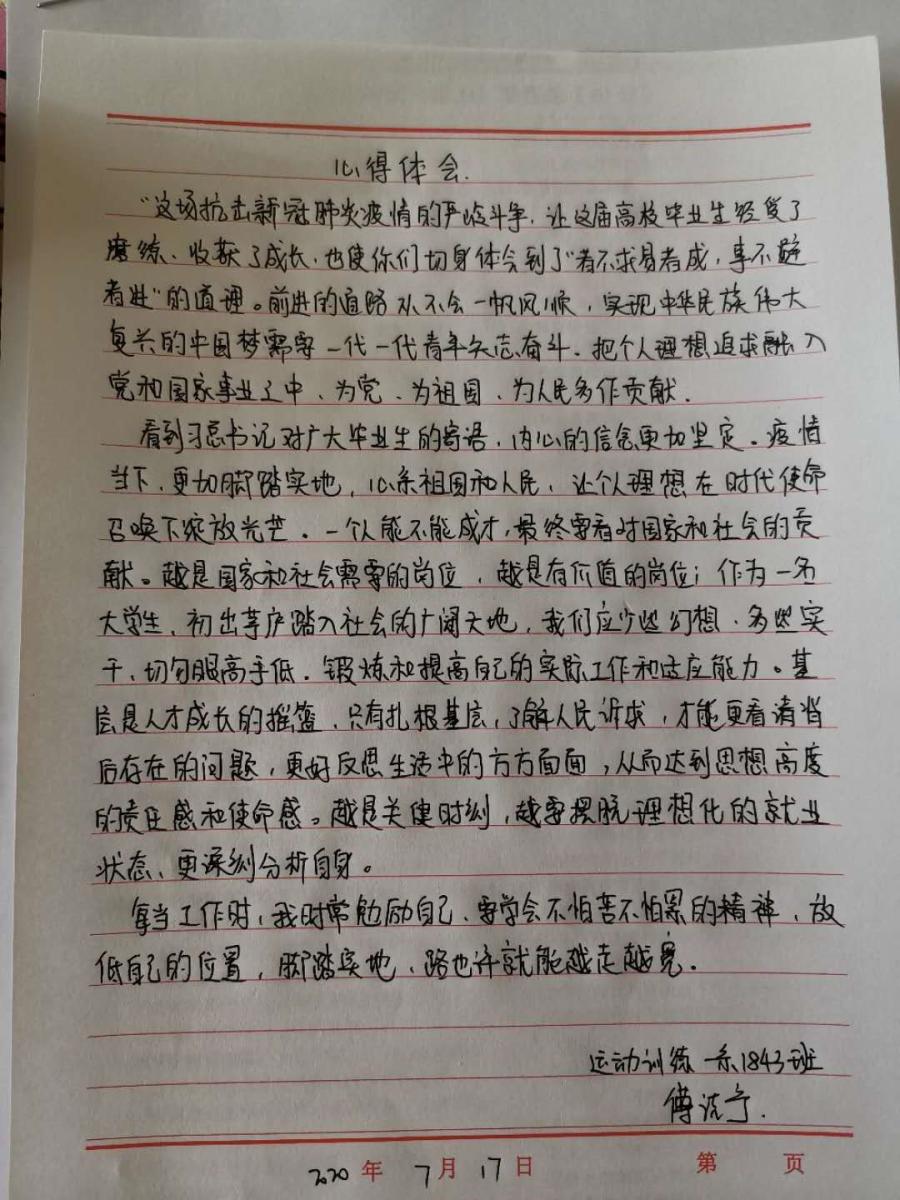 心得体会.
"这场抗击新冠肺炎疫情的严峻斗争，让这届高校毕业生经受了
磨练、收获了成长，也使你们切身体会到了"者不求易者成，事不避
者进"的道理。前进的道路从不会一帆风顺，实现中华民族伟大
复兴的中国梦需要一代一代青年矢志奋斗。把个人理想追求融入
党和国家事业之中，为党、为祖国、为人民多作贡献.
看到习总书记对广大毕业生的寄语，内心的信念更加坚定。疫情
当下，更加脚踏实地，心系祖国和人民，让个人理想在时代使命
召唤下绽放光芒。一个人能不能成才，最终要看对国家和社会的贡
献。越是国家和社会需要的岗位，越是有价值的岗位；作为一名
大学生，初出茅庐踏入社会的广阔天地，我们应少些幻想，多些实
干，切勿眼高手低.锻炼和提高自己的实际工作和适应能力。基
层是人才成长的摇篮，只有扎根基层，了解人民诉求，才能更看清背
后存在的问题，更好反思生活中的方方面面，从而达到思想高度
的责任感和使命感。越是关键时刻，越要摆脱理想化的就业
状态、更深刻分析自身。
每当工作时，我时常勉励自己，要学会不怕苦不怕累的精神，放
低自己的位置，脚踏实地，路也许就能越走越宽.
运动训练一系1843班
傅 宁.
2020年 7月17日 第 页